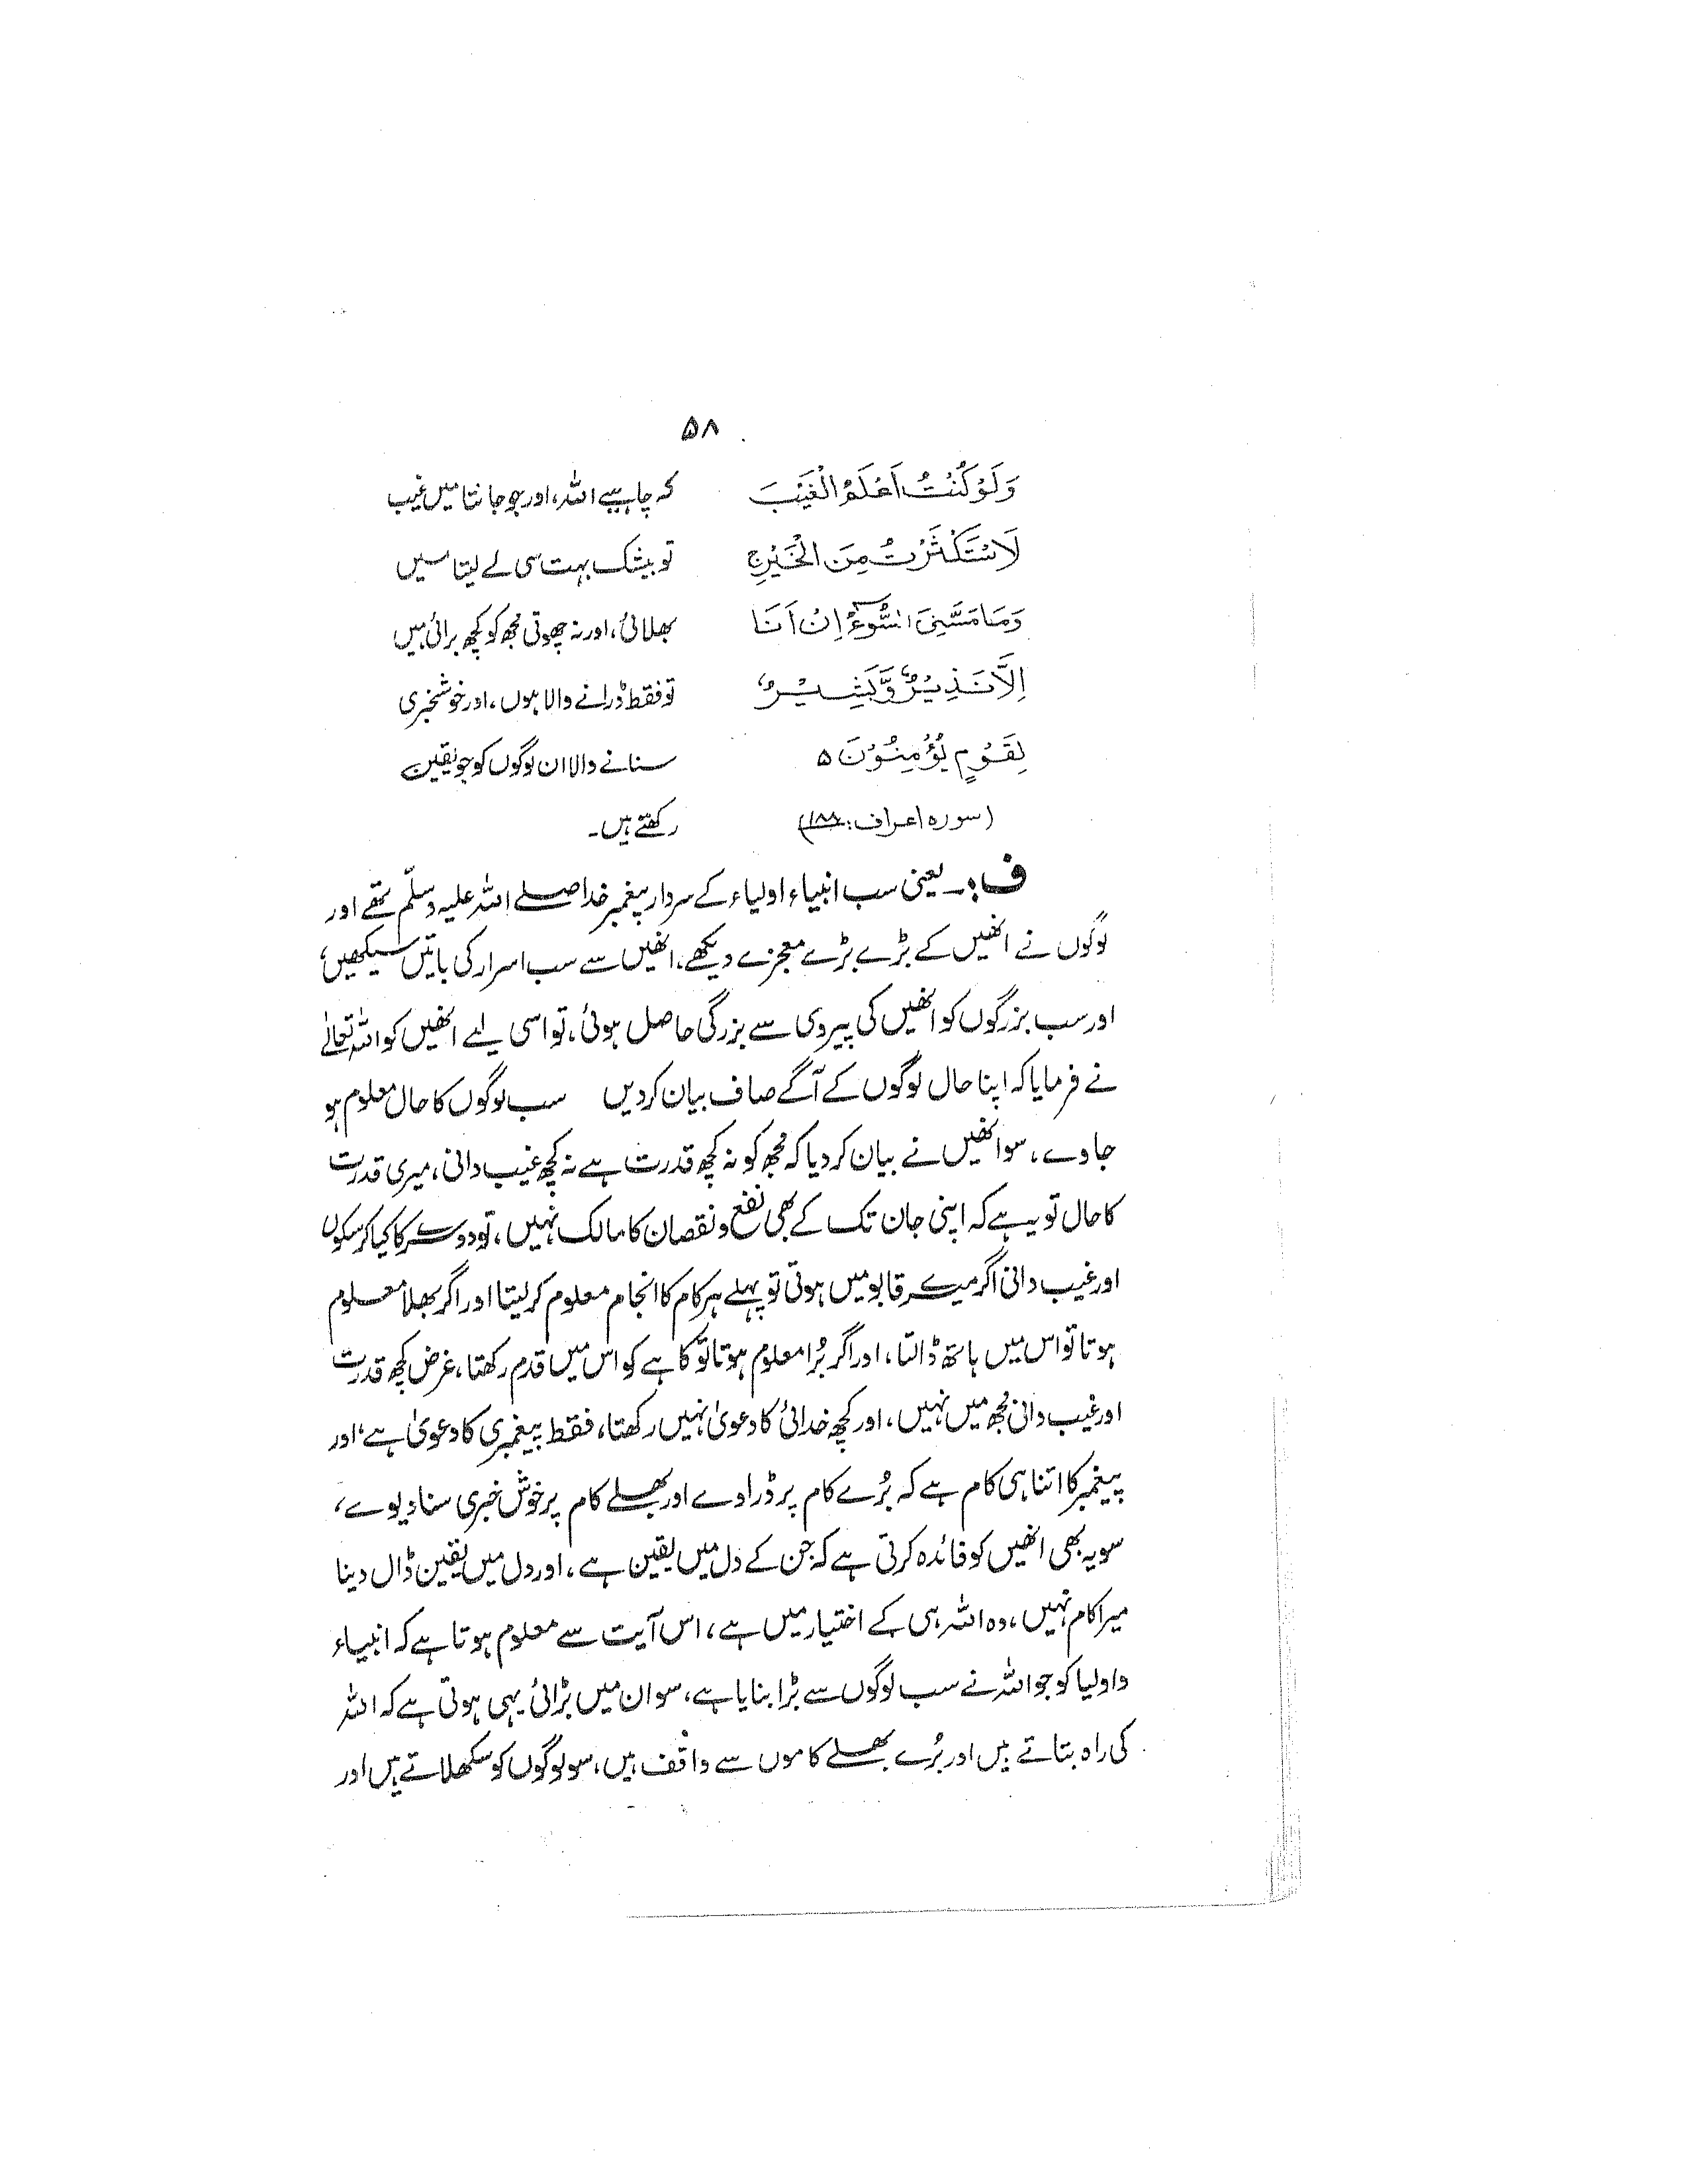 ۵۸
وَلَوْ كُنْتُ اَعْلَمُ الْغَيْبَ
لَاسْتَكْثَرْتُ مِنَ الْخَيْرِ ج
وَمَا مَسَّنِىَ السُّوْٓءُ اِنْ اَنَا
اِلَّا نَذِيْرٌ وَّبَشِيْرٌ
لِقَوْمٍ يُّؤْمِنُوْنَ ۵
(سورہ اعراف: ۱۸۸)
کہ چاہیے اللہ، اور جو جانتا میں غیب
تو بیشک بہت سی لے لیتا میں
بھلائی، اور نہ چھوتی مجھ کو کچھ برائی میں
تو فقط ڈرانے والا ہوں، اور خوشخبری
سنانے والا ان لوگوں کو جو یقین
رکھتے ہیں۔
ف:۔ یعنی سب انبیاء اولیاء کے سردار پیغمبر خدا صلے اللہ علیہ وسلّم تھے اور
لوگوں نے انھیں کے بڑے بڑے معجزے دیکھے، انھیں سے سب اسرار کی باتیں سیکھیں،
اور سب بزرگوں کو انھیں کی پیروی سے بزرگی حاصل ہوئی، تو اسی لیے انھیں کو اللہ تعالٰے
نے فرمایا کہ اپنا حال لوگوں کے آگے صاف بیان کر دیں سب لوگوں کا حال معلوم ہو
جاوے، سو انھیں نے بیان کر دیا کہ مجھ کو نہ کچھ قدرت ہے نہ کچھ غیب دانی، میری قدرت
کا حال تو یہ ہے کہ اپنی جان تک کے بھی نفع و نقصان کا مالک نہیں، تو دوسرے کا کیا کر سکوں
اور غیب دانی اگر میرے قابو میں ہوتی تو پہلے ہر کام کا انجام معلوم کر لیتا اور اگر بھلا معلوم
ہوتا تو اس میں ہاتھ ڈالتا، اور اگر بُرا معلوم ہوتا تو کاہے کو اس میں قدم رکھتا، غرض کچھ قدرت
اور غیب دانی مجھ میں نہیں، اور کچھ خدائی کا دعویٰ نہیں رکھتا، فقط پیغمبری کا دعویٰ ہے، اور
پیغمبر کا اتنا ہی کام ہے کہ بُرے کام پر ڈراوے اور بھلے کام پر خوش خبری سنا دیوے،
سو یہ بھی انھیں کو فائدہ کرتی ہے کہ جن کے دل میں یقین ہے، اور دل میں یقین ڈال دینا
میرا کام نہیں، وہ اللہ ہی کے اختیار میں ہے، اس آیت سے معلوم ہوتا ہے کہ انبیاء
و اولیا کو جو اللہ نے سب لوگوں سے بڑا بنایا ہے، سو ان میں بڑائی یہی ہوتی ہے کہ اللہ
کی راہ بتاتے ہیں اور بُرے بھلے کاموں سے واقف ہیں، سو لوگوں کو سکھلاتے ہیں اور